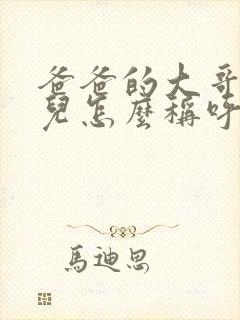 爸爸的大哥
兒怎麼稱呼
馬迪思